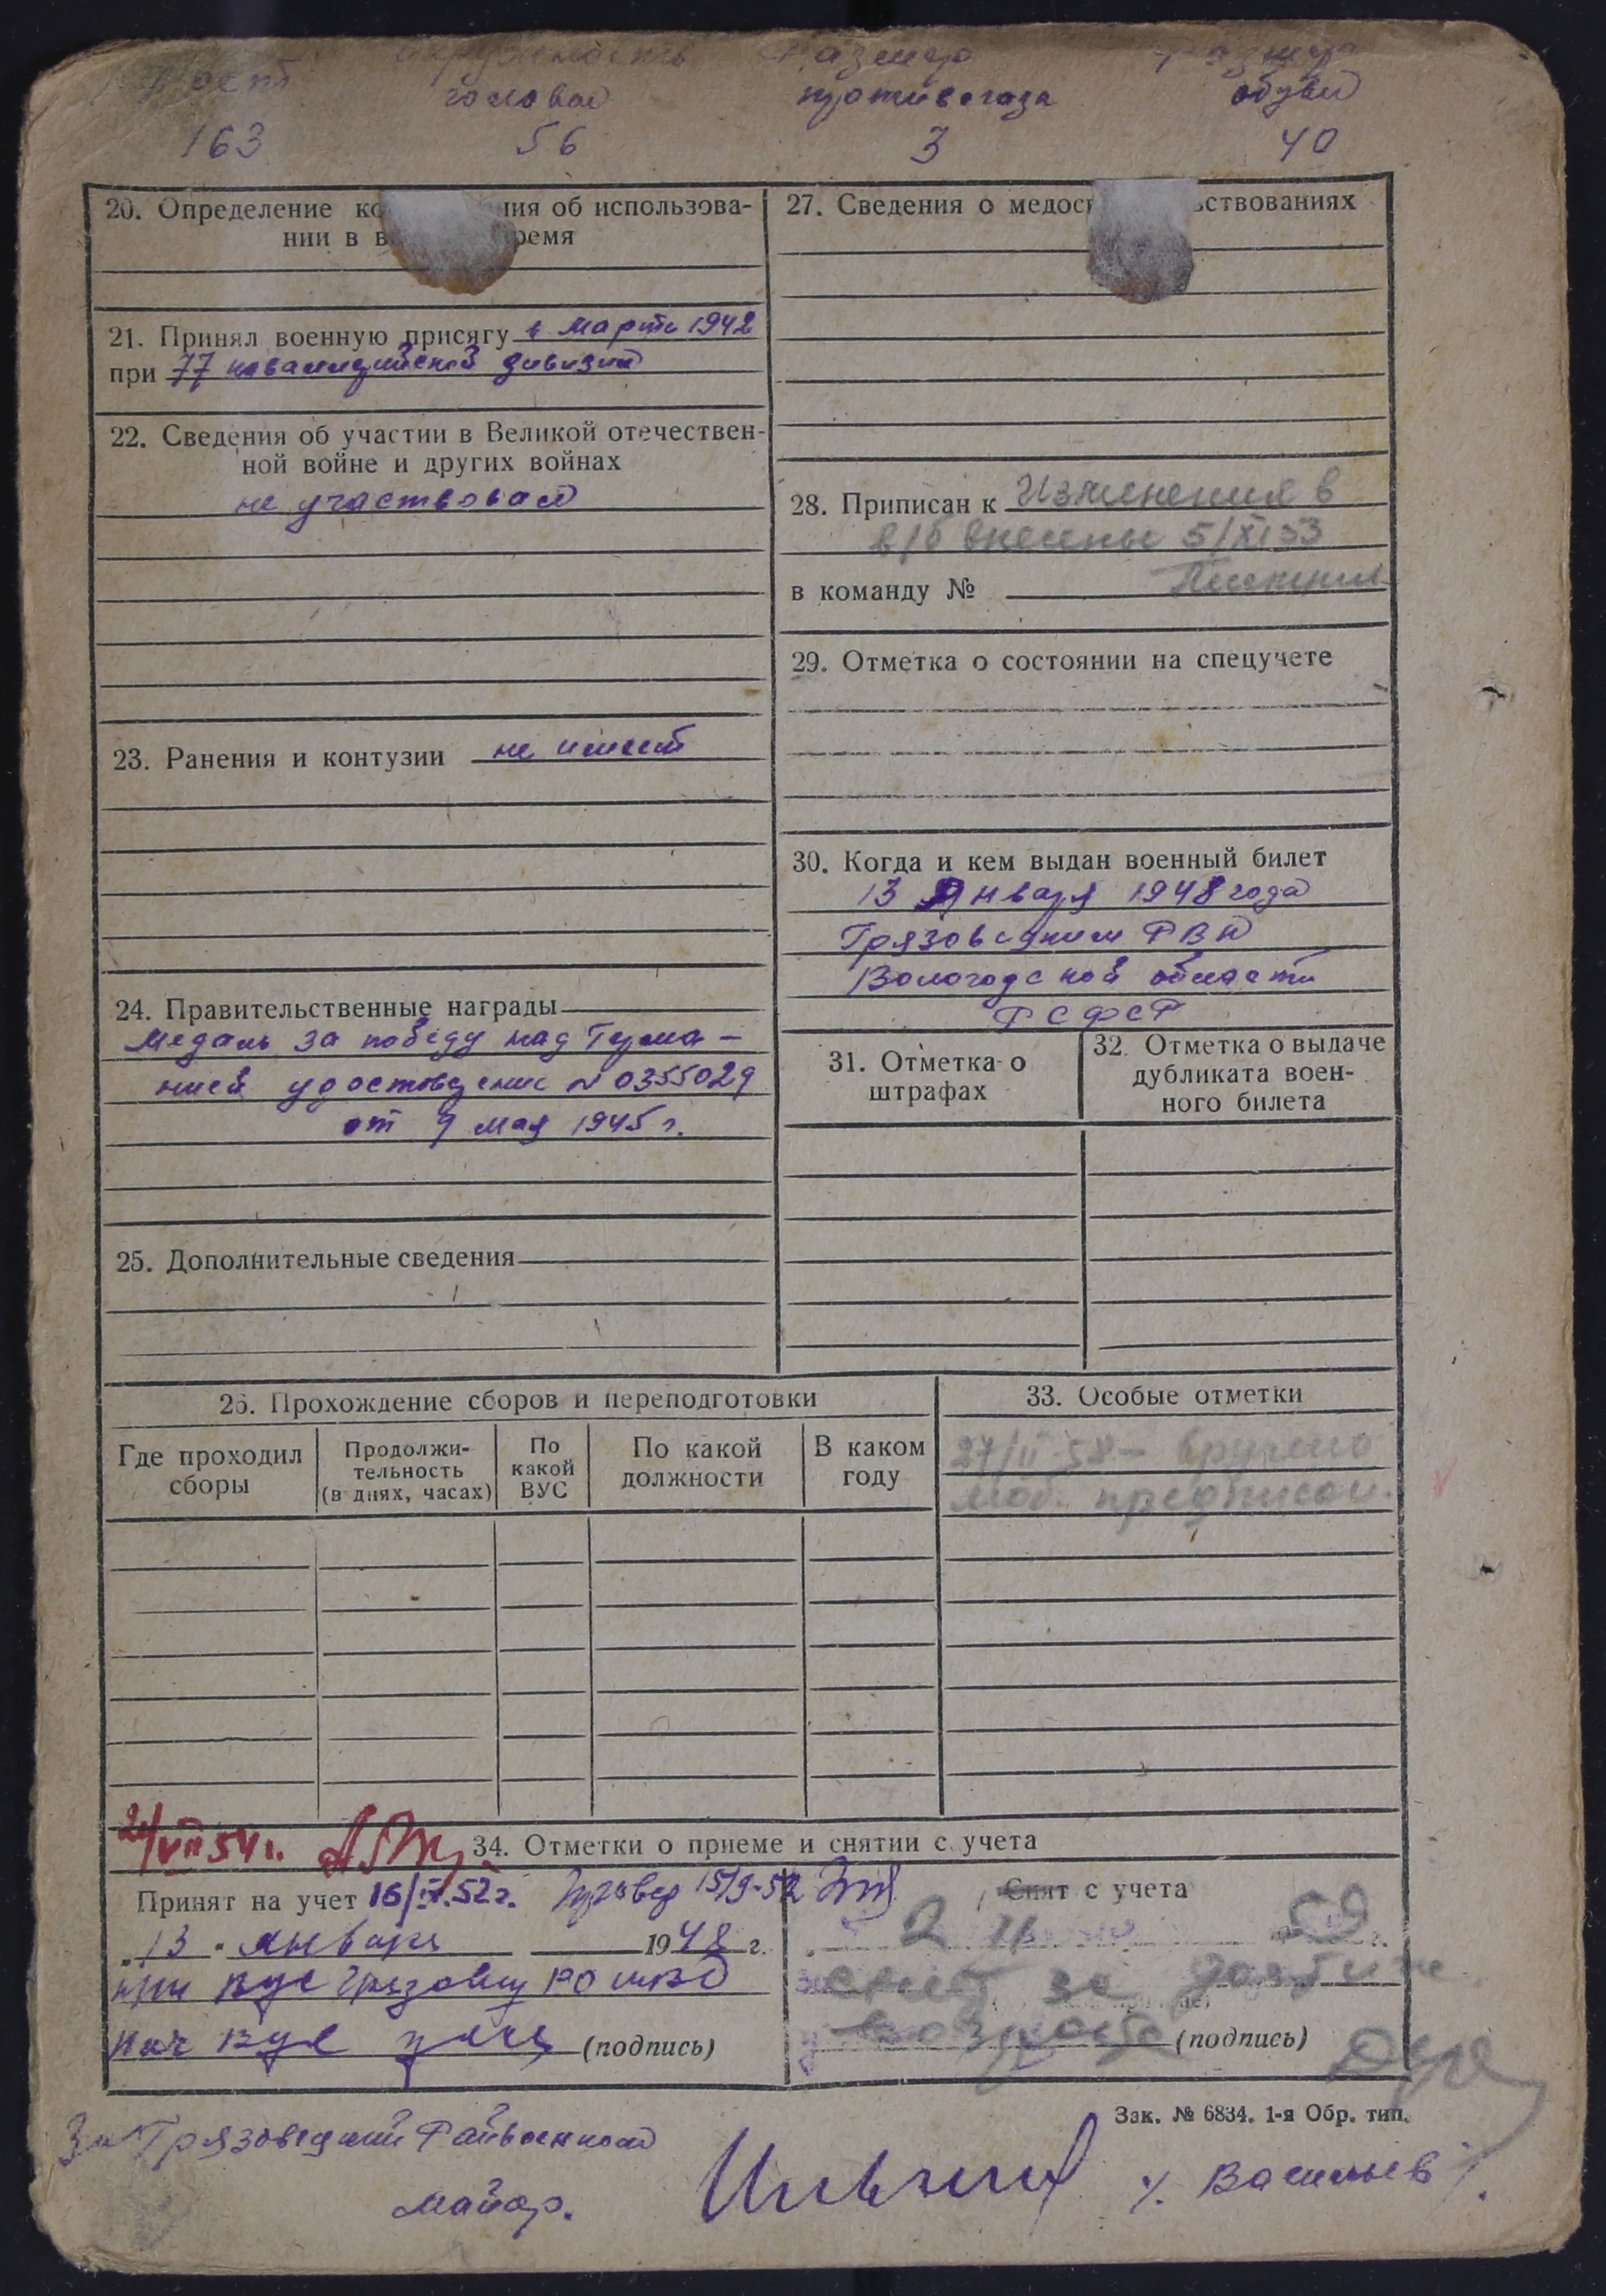 Рост окружность размер размер
головы противогаза обуви
163 56 3 40
20. Определение ко ния об использова-
нии в в ремя
21. Принял военную присягу в марте 1942
при 77 кавалерийской дивизии
22. Сведения об участии в Великой отечествен-
ной войне и других войнах
не участвовал
23. Ранения и контузии не имеет
24. Правительственные награды
медаль за победу над Герма-
нией удостоверение N 0355029
от 9 мая 1945 г.
25. Дополнительные сведения
27. Сведения о медос ьствованиях
28. Приписан к Изменения в
в/б внесены 5/XI 53
в команду №
29. Отметка о состоянии на спецучете
30. Когда и кем выдан военный билет
13 января 1948 года
Грязовецким РВК
Вологодской области
РСФСР
31. Отметка о
штрафах
32. Отметка о выдаче
дубликата воен-
ного билета
26. Прохождение сборов и переподготовки
Где проходил
сборы
Продолжи-
тельность
(в днях, часах)
По
какой
ВУС
По какой
должности
В каком
году
33. Особые отметки
27/II 58 - вручено
моб. предписан.
VII 54 г.
34. Отметки о приеме и снятии с учета
Принят на учет 16/IX.52 г. 15/9-52
13 января 1948 г.
при ВУС Грязовец РО МВД
нач ВУС (подпись)
Снят с учета
2 59 г.
снят за достиж.
возраста (подпись)
Зак. № 6834. 1-я Обр. тип.
Грязовецкий Райвоенком
майор. /. Васильев /.